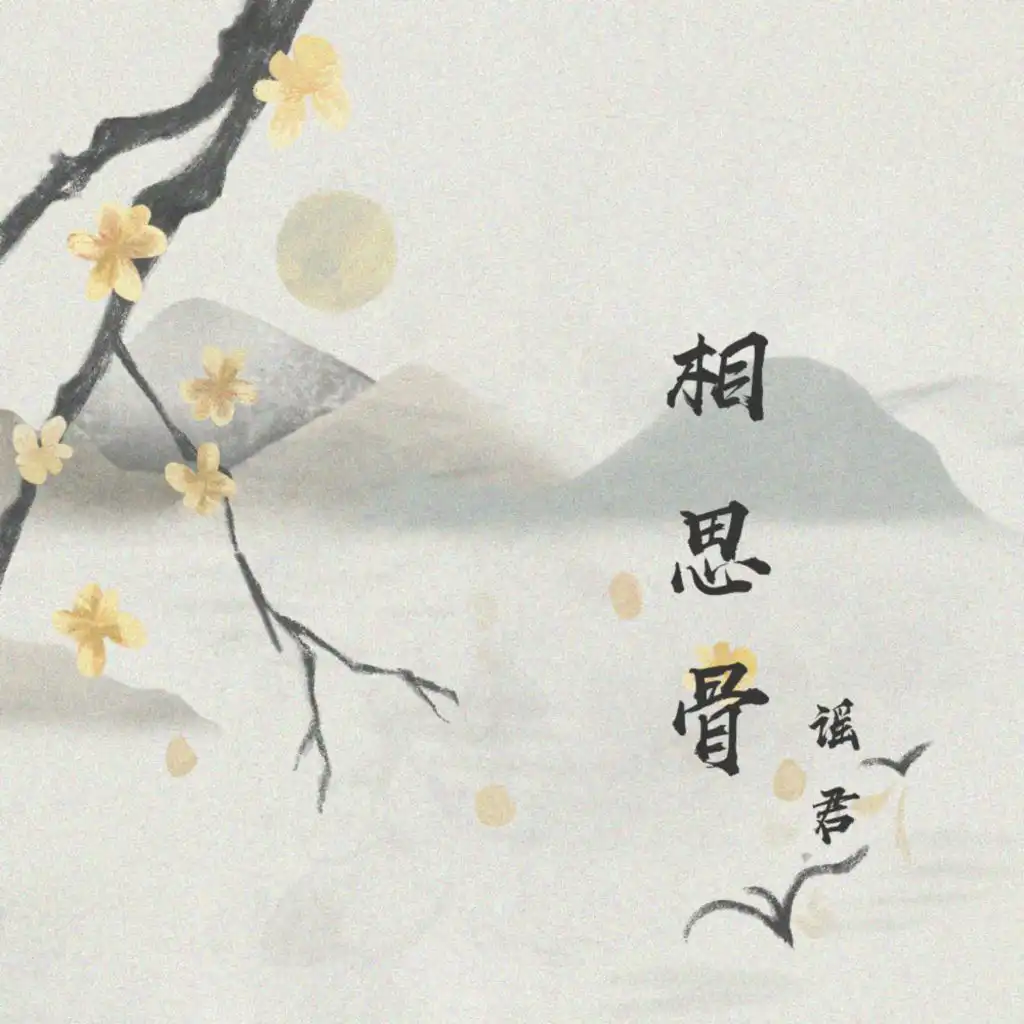 相思骨
谣君